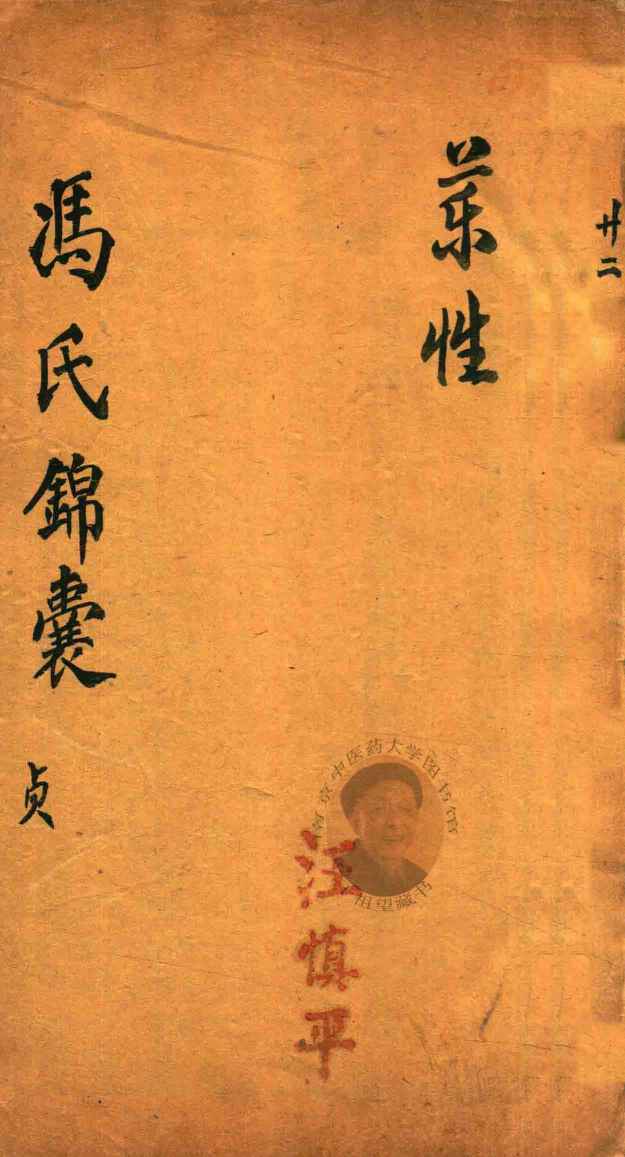 廿二
药性
馮氏錦囊 贞
南京中医药大学图书馆
祖望藏书
汪慎平